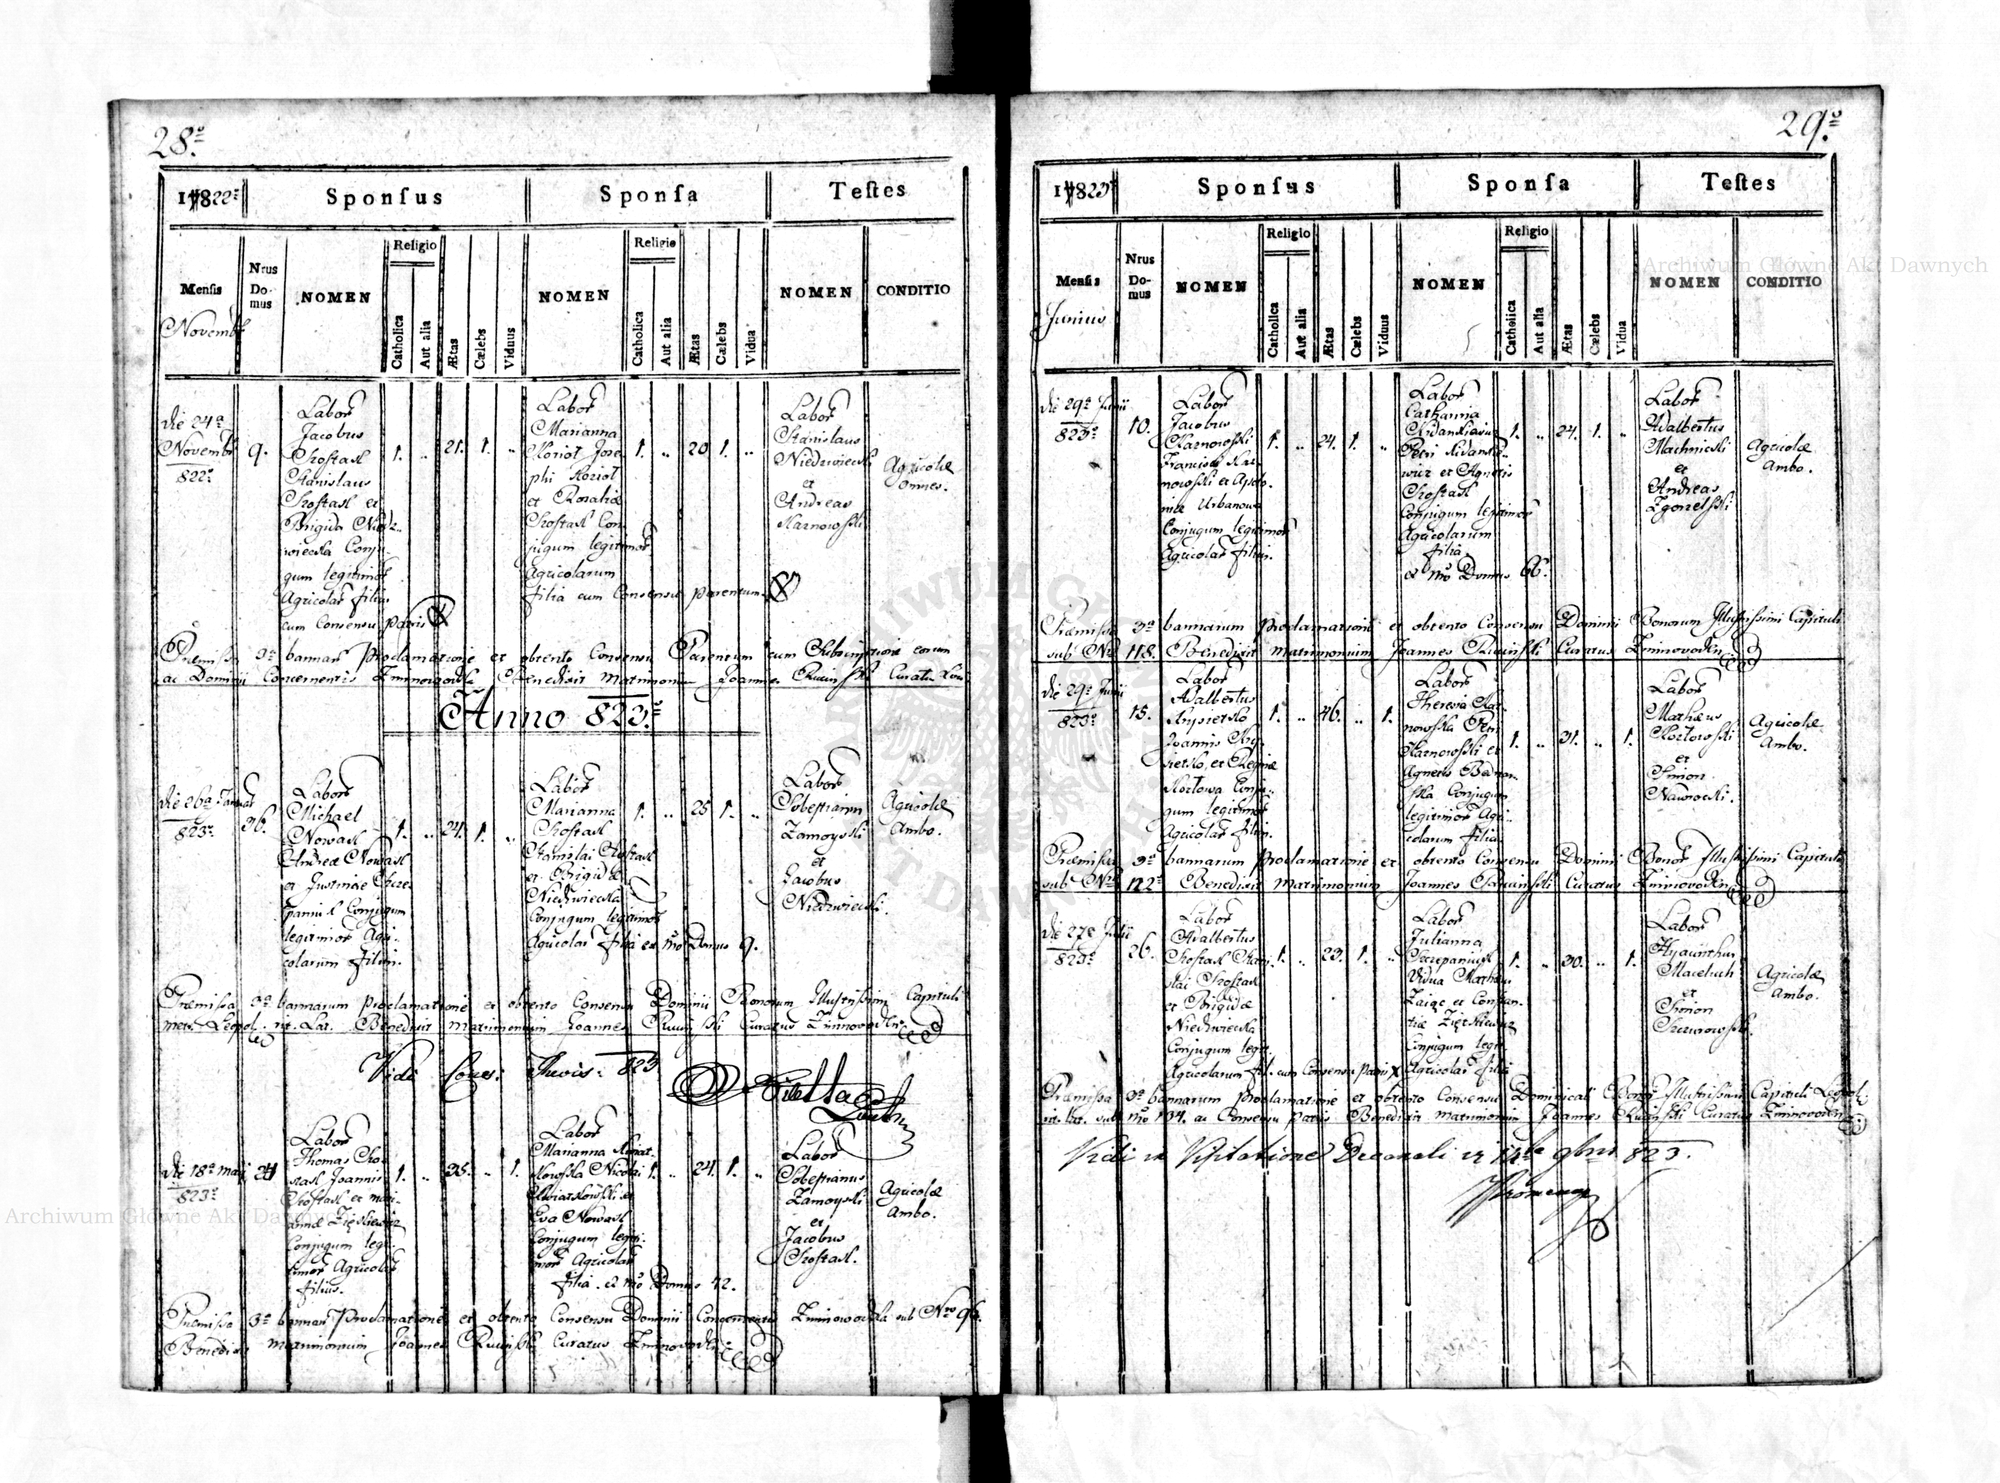 28.
17822.
Sponsus
Sponsa
Testes
Mensis
Novembr
Nrus
Do-
mus
NOMEN
Religio
Catholica
Aut alia
Ætas
Cælebs
Viduus
NOMEN
Religio
Catholica
Aut alia
Ætas
Cælebs
Vidua
NOMEN
CONDITIO
die 24a
Novembr
822.
9.
Labor
Jacobus
Szostak
Stanislaus
Szostak et
Brigida
Conju-
gum legitimor
Agricolar filius
cum Consensu patris
1.
..
21.
1.
..
Labor
Marianna
Koziol Jose
phi Koziol
et Rosaliæ
Szostak Con
jugum legitimor
Agricolarum
filia cum Consensu parentum
1.
..
20
1.
..
Labor
Stanislaus
Niedzwiecki
et
Andreas
Karnowski
Agricolæ
omnes.
Præmissa 3a bannar proclamatione et obtento Consensu Parentum cum Subscriptione eorum
ac Dominii Concernentis Benedixit matrimonium Joannes Curatus
Anno 823.
die 26a Januar
823.
36.
Labor
Michael
Nowak
Andreæ Nowak
et Justinae
Conjugum
legitimor Agri-
colarum filius.
1.
..
24.
1.
..
Labor
Marianna
Szostak
Stanislai Szostak
et Brigidæ
Niedzwiecka
Conjugum legitimor
Agricolar filia ex Nro Domus 9.
1.
..
25
1.
..
Labor
Sobestianus
Zamoyski
et
Jacobus
Niedzwiecki.
Agricolæ
Ambo.
Præmissa 3a bannarum proclamatione et obtento Consensu Dominii Bonorum Illustrissimi Capituli
metr. Leopol. rit. Lat. Benedixit matrimonium Joannes Curatus
Vidi 823
die 18a maji
823.
Labor
Thomas Szo-
stak Joannis
Szostak et mari-
annæ
Conjugum legi-
timor Agricolar
filius.
1.
..
..
1.
Labor
Marianna
Nicolai
et
Eva Nowak
Conjugum legiti-
mor Agricolar
filia. ex Nro Domus 42.
1.
..
24.
1.
..
Labor
Sobestianus
Zamoyski
et
Jacobus
Szostak.
Agricolæ
Ambo.
Præmissa 3a bannar Proclamatione et obtento Consensu Dominii Concernentis sub Nro 96.
Benedixit matrimonium Joannes Curatus
29.
17823
Sponsus
Sponsa
Testes
Mensis
Junius
Nrus
Do-
mus
NOMEN
Religio
Catholica
Aut alia
Ætas
Cælebs
Viduus
NOMEN
Religio
Catholica
Aut alia
Ætas
Cælebs
Vidua
NOMEN
CONDITIO
die 29a Junii
823.
10.
Labor
Jacobus
Karnowski
Francisci Kar-
nowski et Apolo-
niæ Urbanowa
Conjugum legitimor
Agricolar filius.
1.
..
24.
1.
..
Labor
Catharina
Petri
et Agnetis
Szostak
Conjugum legitimor
Agricolarum
filia
ex Nro Domus 66.
1.
..
24.
1.
..
Labor
Adalbertus
Machnicki
et
Andreas
Zgorzelski
Agricolæ
Ambo.
Præmissa 3a bannarum proclamatione et obtento Consensu Dominii Bonorum Illustrissimi Capituli
sub Nro 118. Benedixit matrimonium Joannes Curatus
die 29a Junii
823.
15.
Labor
Adalbertus
Joannis
et Reginæ
Conju-
gum legitimor
Agricolar filius.
1.
..
46.
..
1.
Labor
Theresia Kar-
nowska Petri
Karnowski et
Agnetis Bednar-
ska Conjugum
legitimor Agri-
colarum filia
1.
..
31.
..
1.
Labor
Mathæus
Kozlowski
et
Simon
Nawrocki.
Agricolæ
Ambo.
Præmissa 3a bannarum proclamatione et obtento Consensu Dominii Bonor Illustrissimi Capituli
sub Nro 122. Benedixit matrimonium Joannes Curatus
die 27a Julii
823.
26.
Labor
Adalbertus
Szostak Stani-
slai Szostak
et Brigidæ
Niedzwiecka
Conjugum legit.
Agricolarum fil. cum Consensu patris
1.
..
23.
1.
..
Labor
Julianna
Szczepaniuk
Vidua
et Constan-
tiæ
Conjugum legit.
Agricolar filia
1.
..
30.
..
1.
Labor
Hyacinthus
et
Simon
Agricolæ
Ambo.
Præmissa 3a bannarum proclamatione et obtento Consensu Dominicali Bonor Illustrissimi Capituli Leopol.
rit. lat. sub Nro 134. ac Consensu patris Benedixit matrimonium Joannes Curatus
Vidi in Visitatione Decanali 823.
Archiwum Główne Akt Dawnych
Archiwum Główne Akt Dawnych
ARCHIWUM GŁÓWNE AKT DAWNYCH